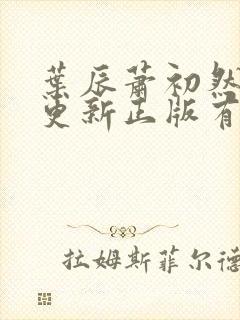 葉辰蕭初然
更新正版有
拉姆斯菲尔德